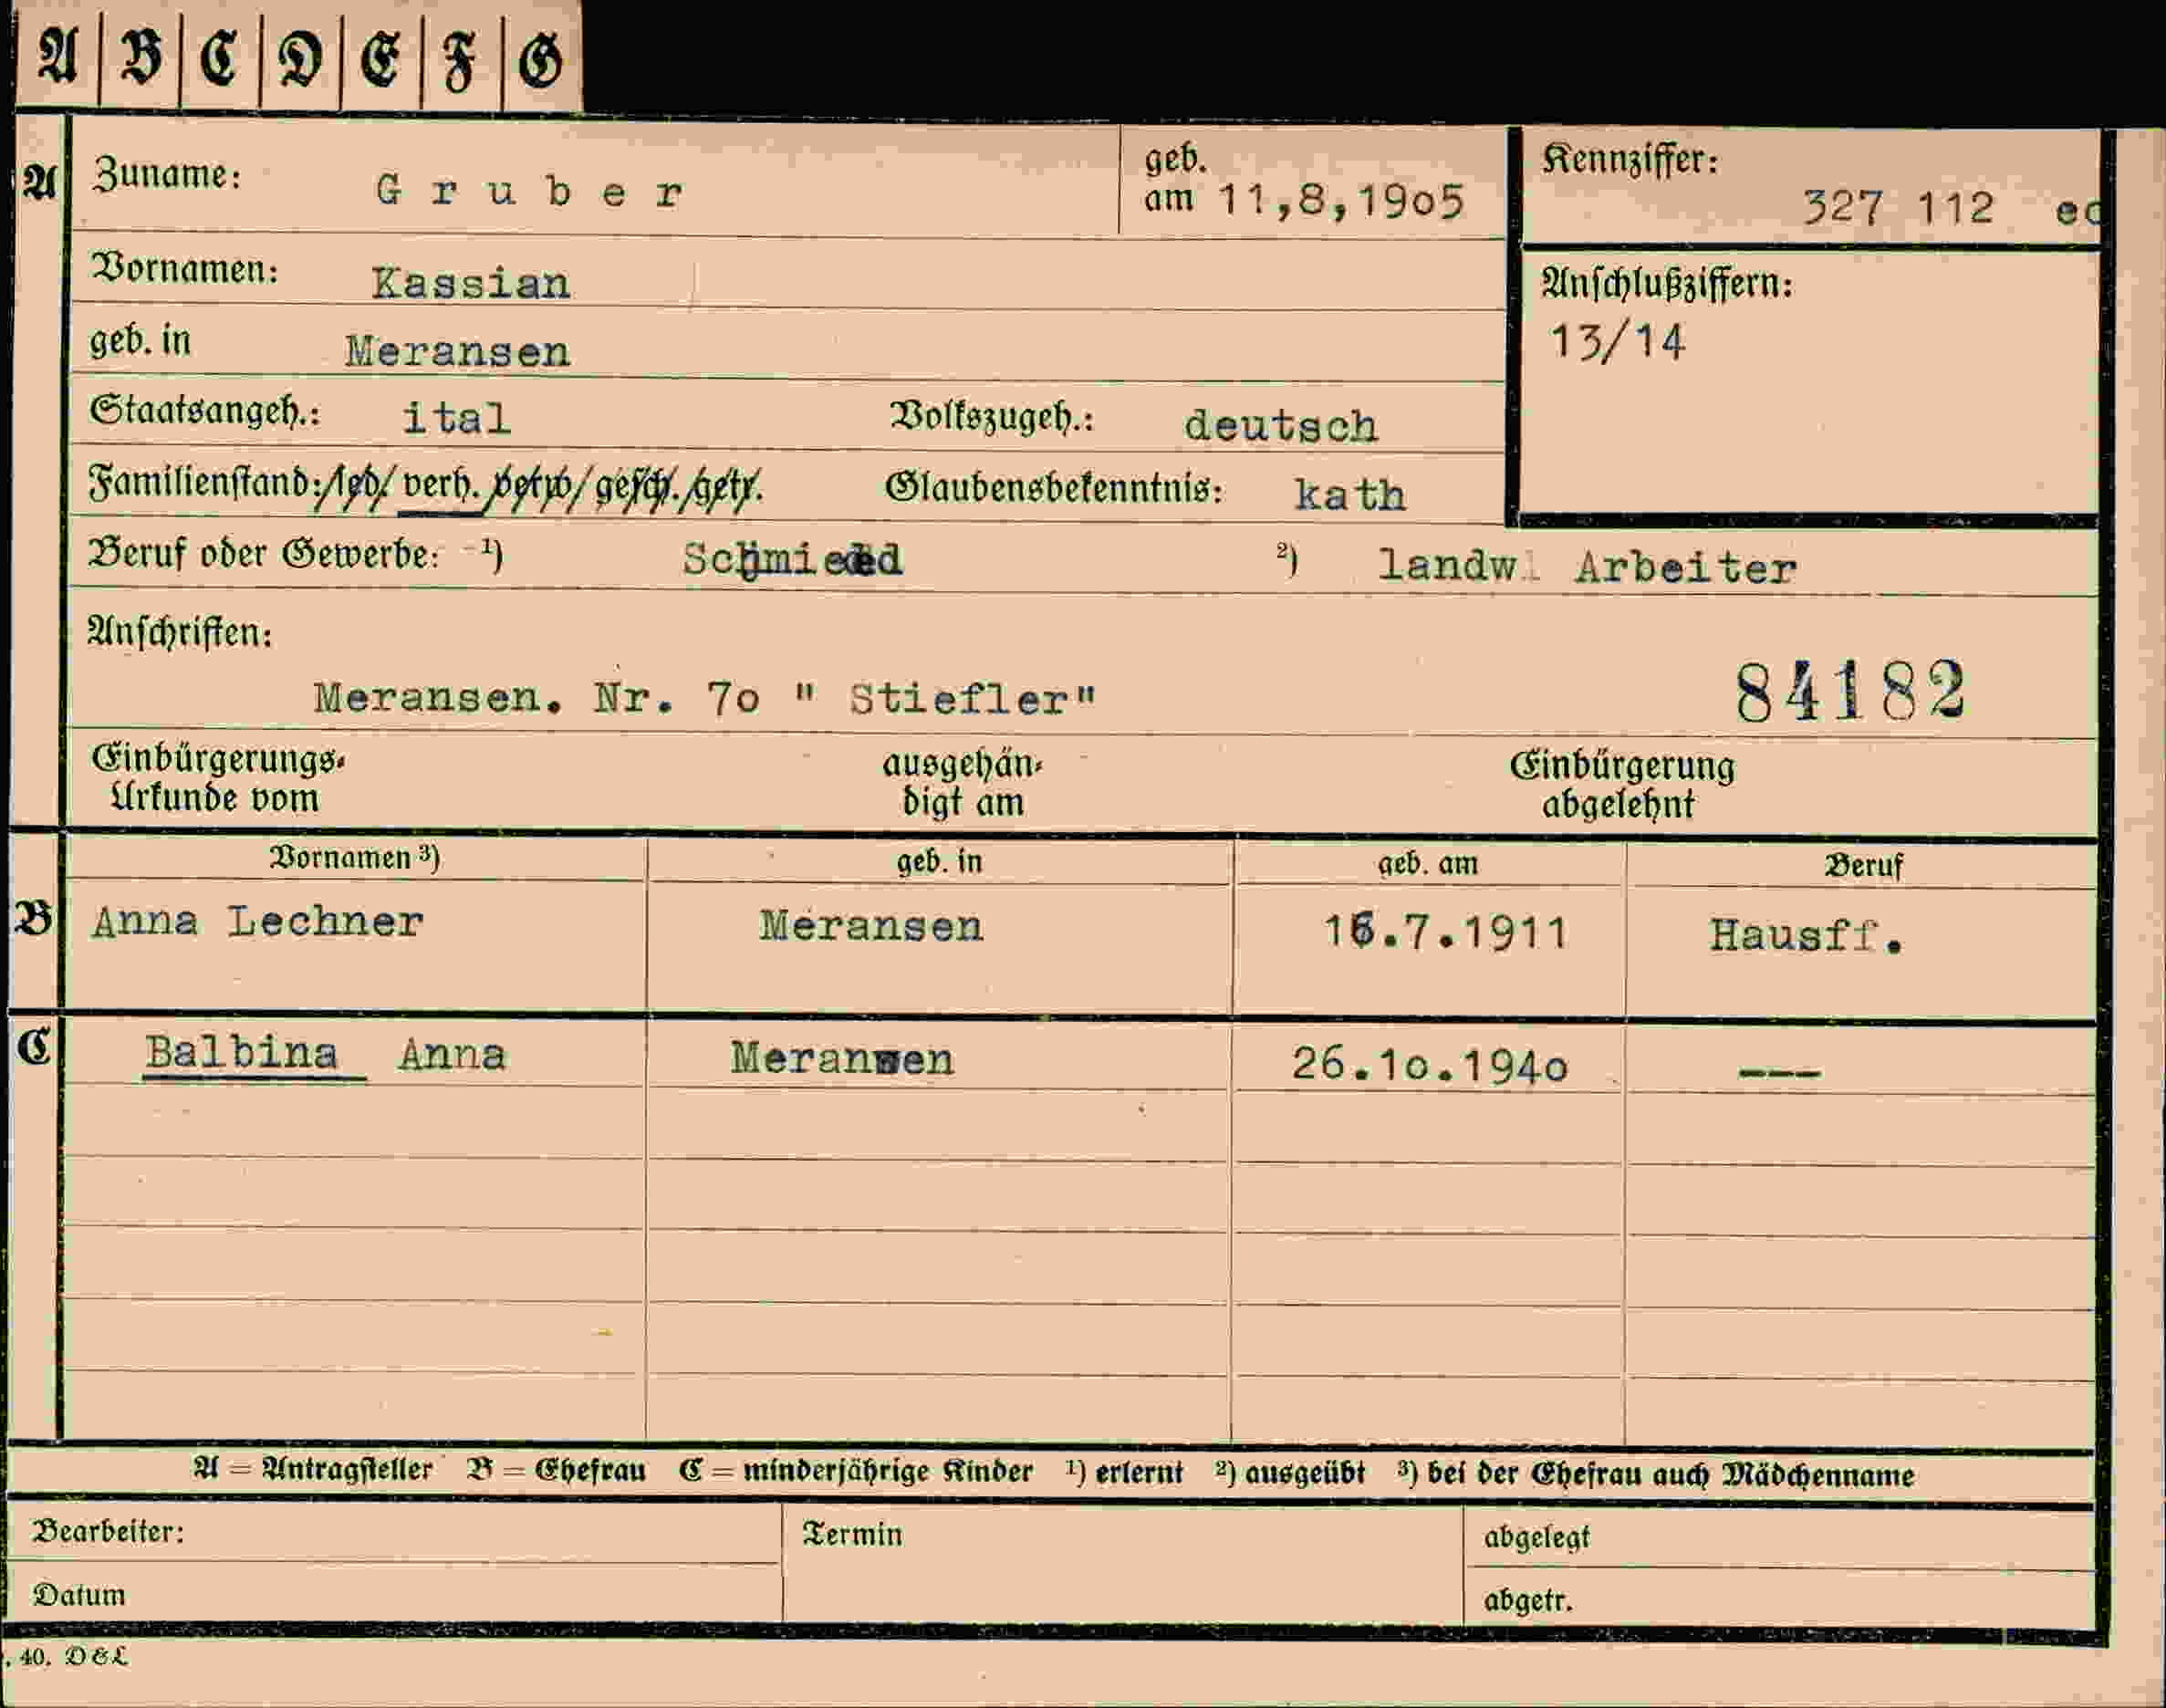 A B C D E F G
A Zuname: Gruber geb. am 11,8,1905 Kennziffer: 327 112
Vornamen: Kassian
Anschlußziffern:
13/14
geb. in Meransen
Staatsangeh.: ital Volkszugeh.: deutsch
Familienstand: led/ verh. verw/ gesch./getr. Glaubensbekenntnis: kath
Beruf oder Gewerbe: 1) Schmied 2) landw. Arbeiter
Anschriften:
Meransen. Nr. 7o " Stiefler" 84182
Einbürgerungs- ausgehän- Einbürgerung
Urkunde vom digt am abgelehnt
Vornamen 3) geb. in geb. am Beruf
B Anna Lechner Meransen 16.7.1911 Hausff.
C Balbina Anna Meransen 26.1o.194o ---
A = Antragsteller B = Ehefrau C = minderjährige Kinder 1) erlernt 2) ausgeübt 3) bei der Ehefrau auch Mädchenname
Bearbeiter: Termin abgelegt
Datum abgetr.
. 40. D & L